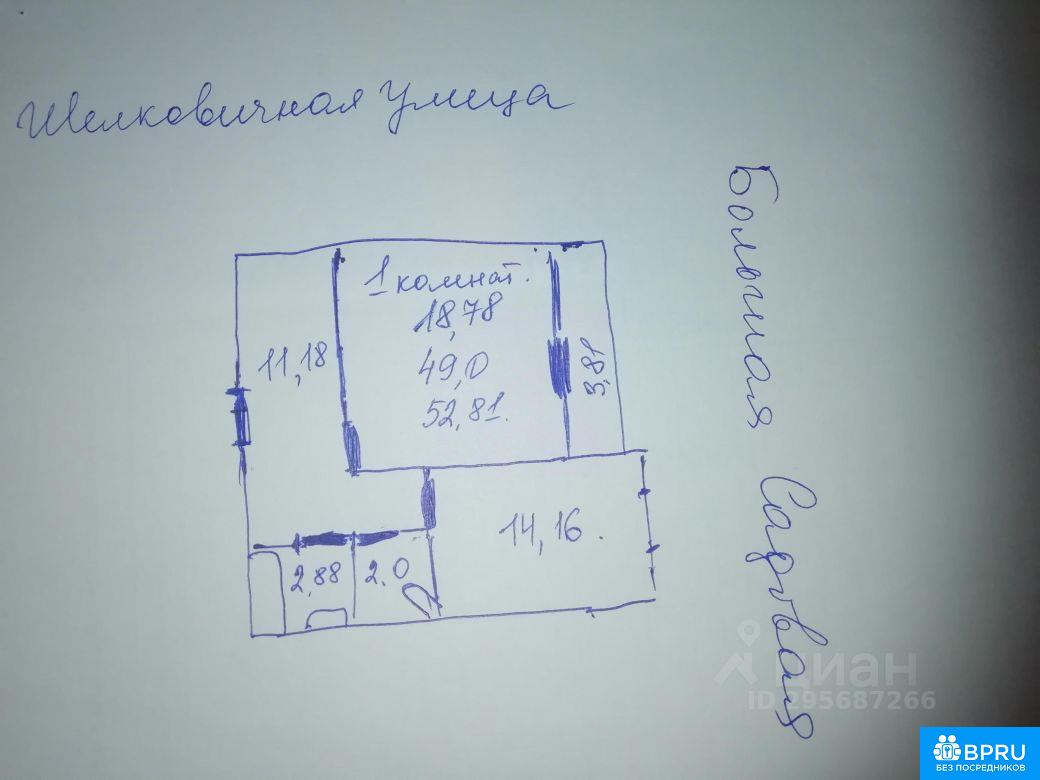 Шелковичная улица
Большая Садовая
1 комнат.
18,78
49,0
52,81.
11,18
3,81
14,16.
2,88
2.0
циан
ID 295687266
BPRU
БЕЗ ПОСРЕДНИКОВ